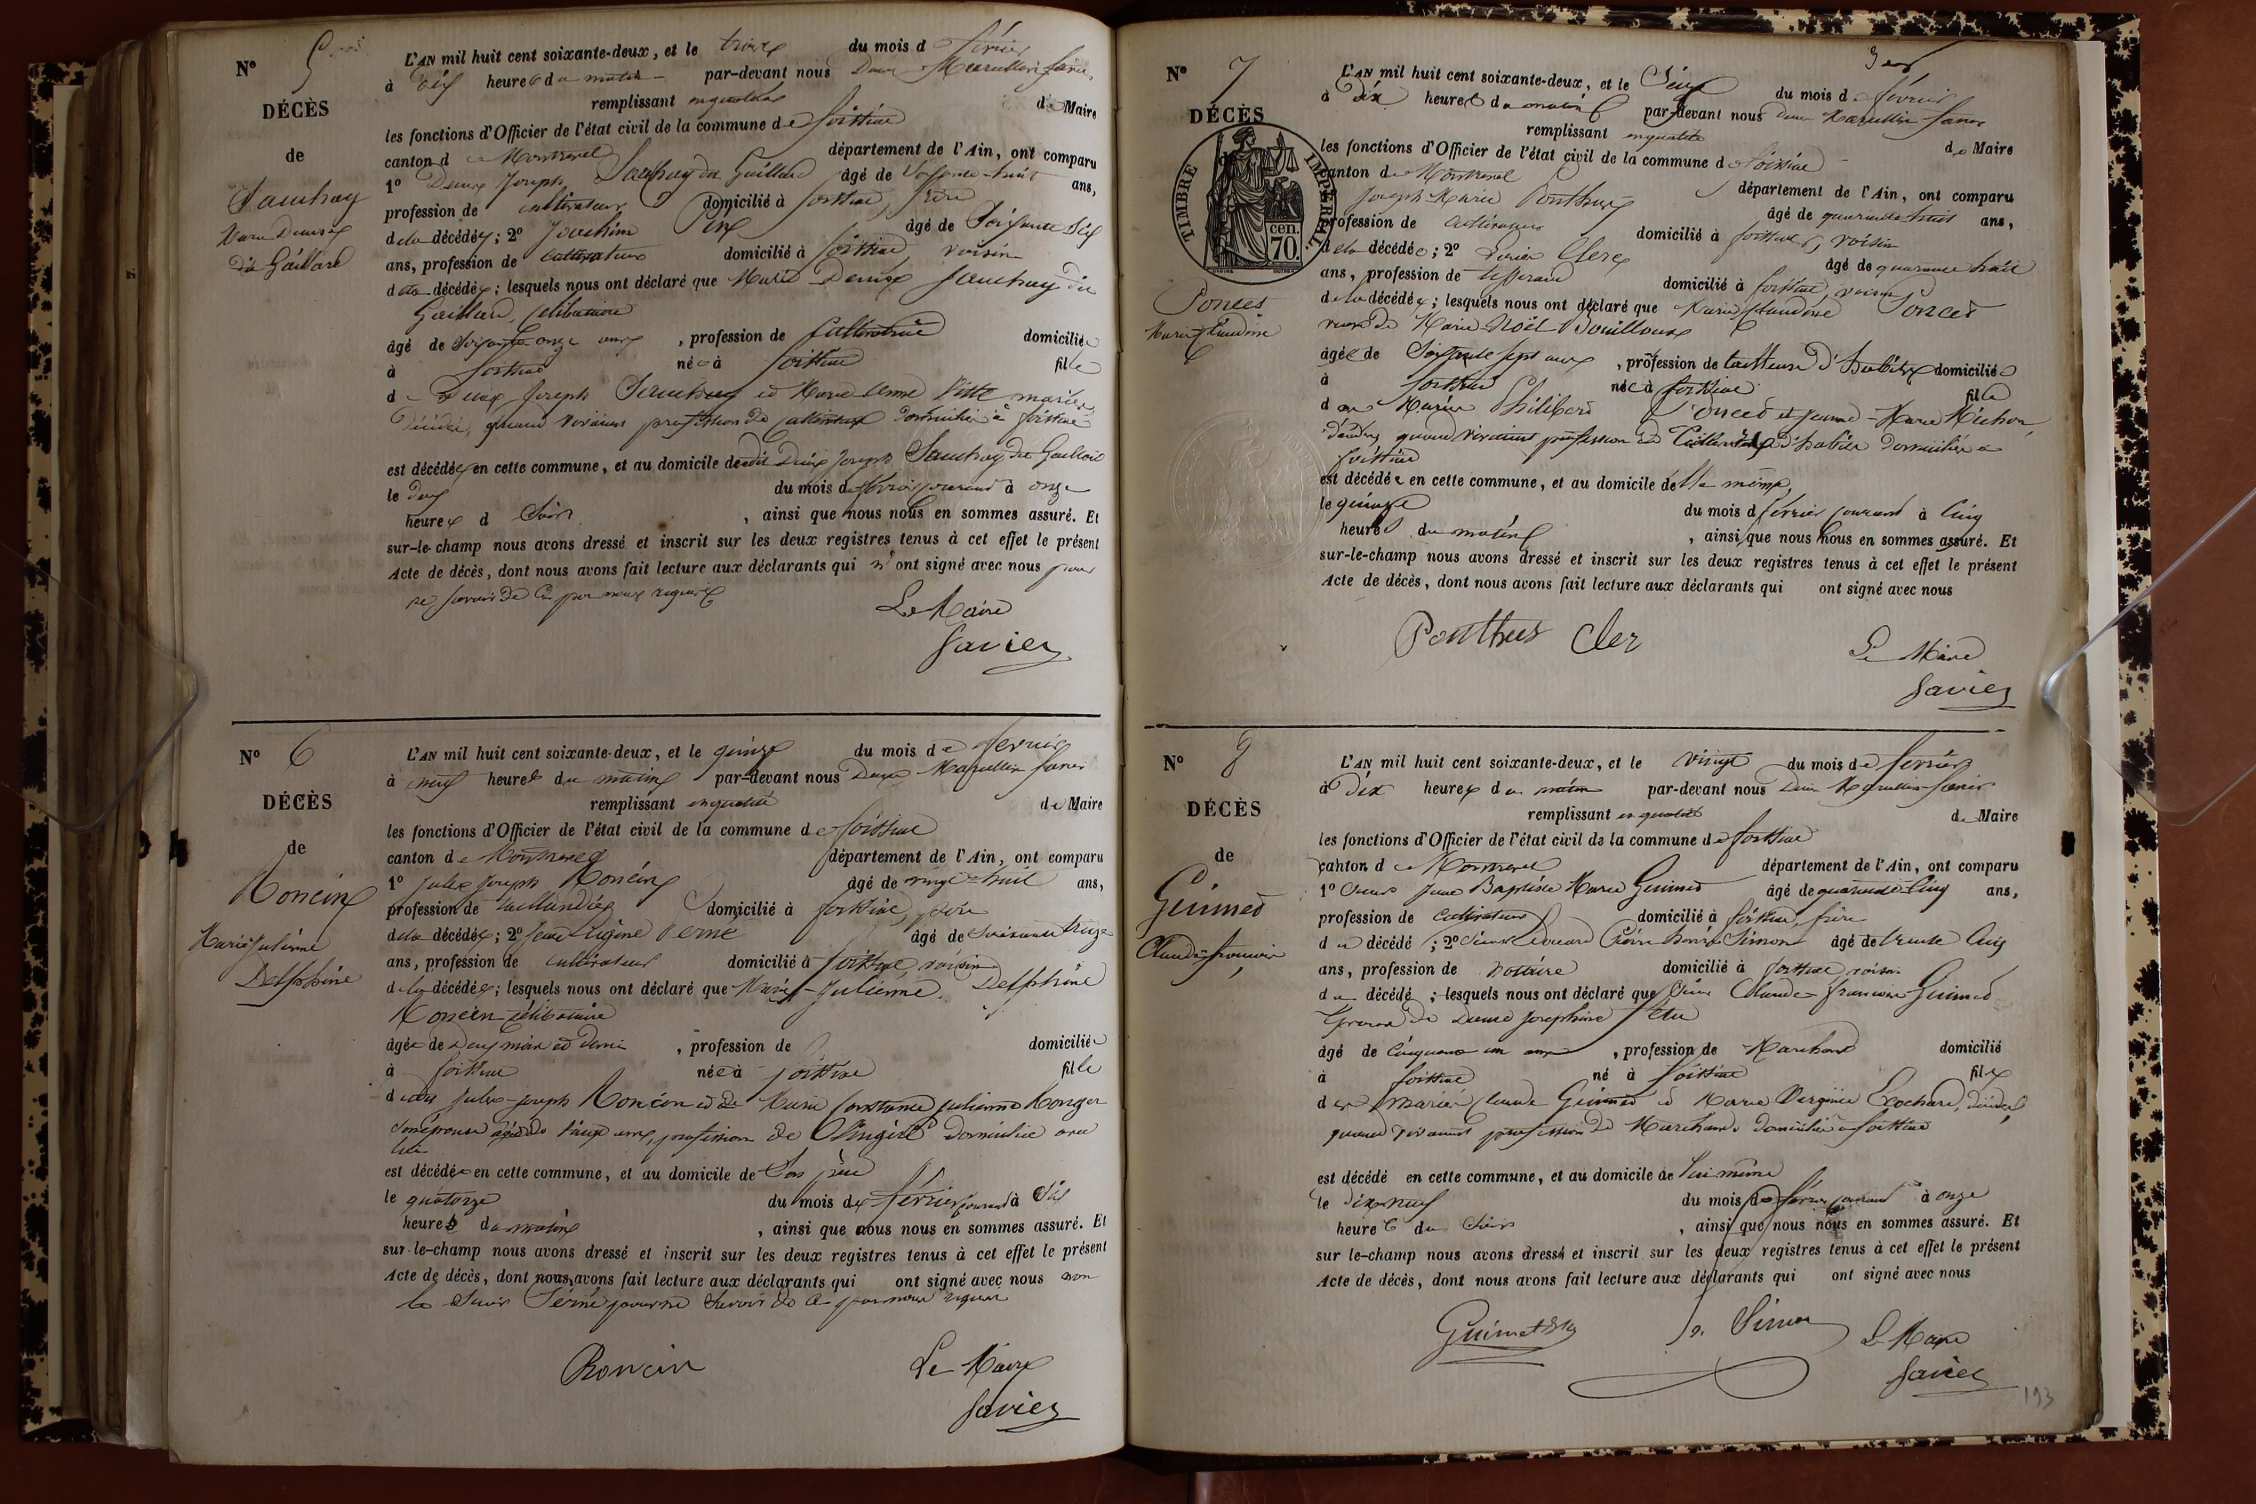 N° 5
DÉCÈS
de
Marie Denise
dit Gaillard
L'AN mil huit cent soixante-deux, et le trois du mois de février
à dix heures du matin par-devant nous
remplissant en qualité de Maire
les fonctions d'Officier de l'état civil de la commune de Foissiat
canton de Montrevel département de l'Ain, ont comparu
1° Denis Joseph dit Gaillard âgé de soixante-huit ans,
profession de cultivateur domicilié à Foissiat, frère
de la décédée; 2° Joachim Pin âgé de soixante six
ans, profession de cultivateur domicilié à Foissiat voisin
de la décédée; lesquels nous ont déclaré que Marie Denise dit
Gaillard, célibataire
âgée de soixante-onze ans, profession de cultivatrice domiciliée
à Foissiat née à Foissiat fille
de Joseph et Marie Anne mariés
décédés, quand vivaient profession de cultivateurs domiciliés à Foissiat
est décédée en cette commune, et au domicile dudit Denis Joseph dit Gaillard
le deux du mois de février courant à onze
heures d soir, ainsi que nous nous en sommes assuré. Et
sur-le-champ nous avons dressé et inscrit sur les deux registres tenus à cet effet le présent
Acte de décès, dont nous avons fait lecture aux déclarants qui n'ont signé avec nous pour
ne savoir de ce par nous requis
Le Maire
Favier
N° 6
DÉCÈS
de
Roncin
Marie Julienne
Delphine
L'AN mil huit cent soixante-deux, et le quinze du mois de février
à neuf heures du matin par-devant nous
remplissant en qualité de Maire
les fonctions d'Officier de l'état civil de la commune de Foissiat
canton de Montrevel département de l'Ain, ont comparu
1° Jules Joseph Roncin âgé de vingt-huit ans,
profession de taillandier domicilié à Foissiat, père
de la décédée; 2° Jean Eugène âgé de soixante treize
ans, profession de cultivateur domicilié à Foissiat, voisin
de la décédée; lesquels nous ont déclaré que Marie-Julienne Delphine
Roncin célibataire
âgée de deux mois et demi, profession de domiciliée
à Foissiat née à Foissiat fille
dudit Jules-Joseph Roncin et de Marie Constance Julienne
son épouse âgée de ans, profession de Lingère domiciliée avec
lui
est décédée en cette commune, et au domicile de son père
le quatorze du mois de février courant à six
heures du matin, ainsi que nous nous en sommes assuré. Et
sur-le-champ nous avons dressé et inscrit sur les deux registres tenus à cet effet le présent
Acte de décès, dont nous avons fait lecture aux déclarants qui ont signé avec nous non
le sieur pour ne savoir de ce par nous requis
Roncin
Le Maire
Favier
N° 7
DÉCÈS
de
TIMBRE IMPÉRIAL
70 cen.
Poncet
Marie Claudine
L'AN mil huit cent soixante-deux, et le du mois de février
à dix heures du matin par-devant nous
remplissant en qualité de Maire
les fonctions d'Officier de l'état civil de la commune de Foissiat
canton de Montrevel département de l'Ain, ont comparu
Joseph Marie Ponthus âgé de quarante huit ans,
profession de cultivateur domicilié à Foissiat, voisin
de la décédée; 2° Clerc âgé de quarante huit
ans, profession de tisserand domicilié à Foissiat, voisin
de la décédée; lesquels nous ont déclaré que Marie Claudine Poncet
veuve de Marie Noël Bouilloux
âgée de soixante sept ans, profession de tailleuse d'habits domiciliée
à Foissiat née à Foissiat fille
de Philibert Poncet et Jeanne-Marie Michon
décédés, quand vivaient profession de d'habits domiciliés à
Foissiat
est décédée en cette commune, et au domicile d'elle même
le quinze du mois de février courant à cinq
heures du matin, ainsi que nous nous en sommes assuré. Et
sur-le-champ nous avons dressé et inscrit sur les deux registres tenus à cet effet le présent
Acte de décès, dont nous avons fait lecture aux déclarants qui ont signé avec nous
Ponthus Cler
Le Maire
Favier
N° 8
DÉCÈS
de
Guimet
Claude-françois
L'AN mil huit cent soixante-deux, et le vingt du mois de février
à dix heures du matin par-devant nous
remplissant en qualité de Maire
les fonctions d'Officier de l'état civil de la commune de Foissiat
canton de Montrevel département de l'Ain, ont comparu
1° Sieur Jean Baptiste Marie Guimet âgé de quarante-cinq ans,
profession de cultivateur domicilié à Foissiat, frère
du décédé; 2° Sieur Edouard Simon âgé de trente cinq
ans, profession de notaire domicilié à Foissiat, voisin
du décédé; lesquels nous ont déclaré que Sieur Claude-françois Guimet
époux de Dame Joséphine
âgé de cinquante un ans, profession de Marchand domicilié
à Foissiat né à Foissiat fils
des mariés Claude Guimet et Marie Virginie Cochard, décédés
quand vivaient profession de Marchands domiciliés à Foissiat
est décédé en cette commune, et au domicile de lui même
le dix neuf du mois de février courant à onze
heures du soir, ainsi que nous nous en sommes assuré. Et
sur le-champ nous avons dressé et inscrit sur les deux registres tenus à cet effet le présent
Acte de décès, dont nous avons fait lecture aux déclarants qui ont signé avec nous
Guimet Simon
Le Maire
Favier
193